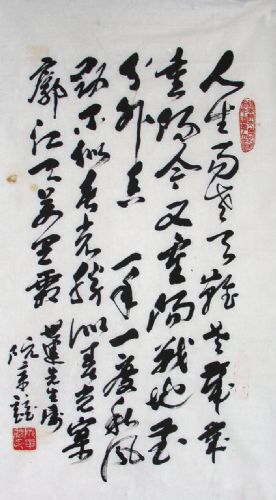 人生易老天難老歲歲
重陽今又重陽戰地黃花
分外香 一年一度秋風
勁不似春光勝似春光寥
廓江天萬里霜
先生屬
阮章競